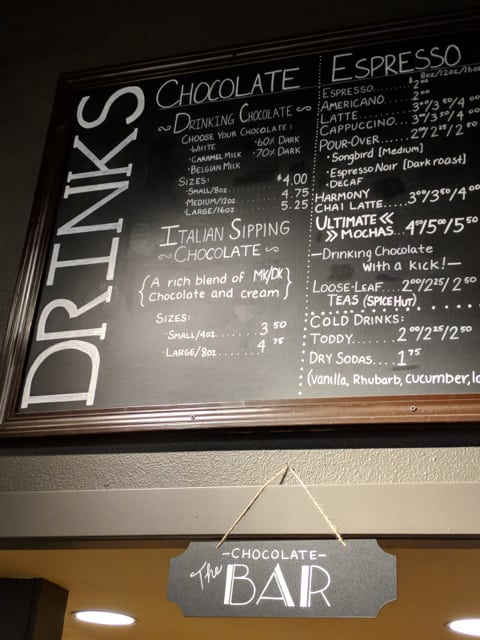 DRINKS
CHOCOLATE
~DRINKING CHOCOLATE~
CHOOSE YOUR CHOCOLATE:
·WHITE ·60% DARK
·CARAMEL MILK ·70% DARK
·BELGIAN MILK
SIZES:
·SMALL/8oz........$4.00
·MEDIUM/12oz........4.75
·LARGE/16oz........5.25
ITALIAN SIPPING
~CHOCOLATE~
{A rich blend of MK/DK
Chocolate and cream}
SIZES:
·SMALL/4oz.......3 50
·LARGE/8oz.......4 75
ESPRESSO
8oz/12oz/16oz
ESPRESSO......$2 00
AMERICANO....2 00
LATTE.........3 00/3 50/4 00
CAPPUCCINO..3 00/3 50/4 00
POUR-OVER....2 00/2 25/2 50
·Songbird [Medium]
·Espresso Noir [Dark roast]
·DECAF
HARMONY
CHAI LATTE....3 00/3 50/4 00
ULTIMATE <<
>> MOCHAS...4 50/5 00/5 50
—Drinking Chocolate
With a kick!—
LOOSE-LEAF....2 00/2 25/2 50
TEAS (SPICE HUT)
COLD DRINKS:
TODDY.......2 00/2 25/2 50
DRY SODAS....1 75
(vanilla, Rhubarb, cucumber,
-CHOCOLATE-
The BAR